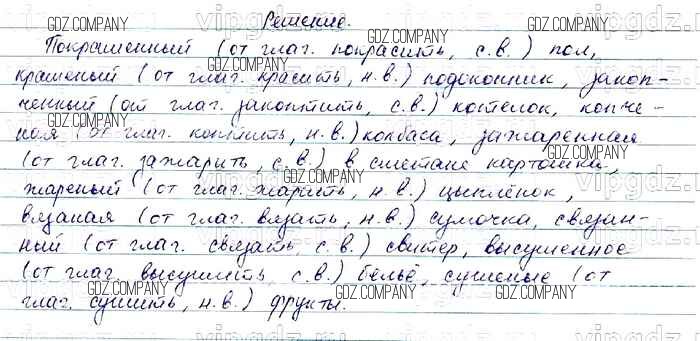 Решение.
Покрашенный (от глаг. покрасить, с.в.) пол,
крашеный (от глаг. красить, н.в.) подоконник, закоп-
ченный (от глаг. закоптить, с.в.) котелок, копче-
ная (от глаг. коптить, н.в.) колбаса, зажаренная
(от глаг. зажарить, с.в.) в сметане картошка,
жареный (от глаг. жарить, н.в.) цыплёнок,
вязаная (от глаг. вязать, н.в.) сумочка, связан-
ный (от глаг. связать, с.в.) свитер, высушенное
(от глаг. высушить, с.в.) бельё, сушеные (от
глаг. сушить, н.в.) фрукты.
GDZ.COMPANY
vipgdz.ru